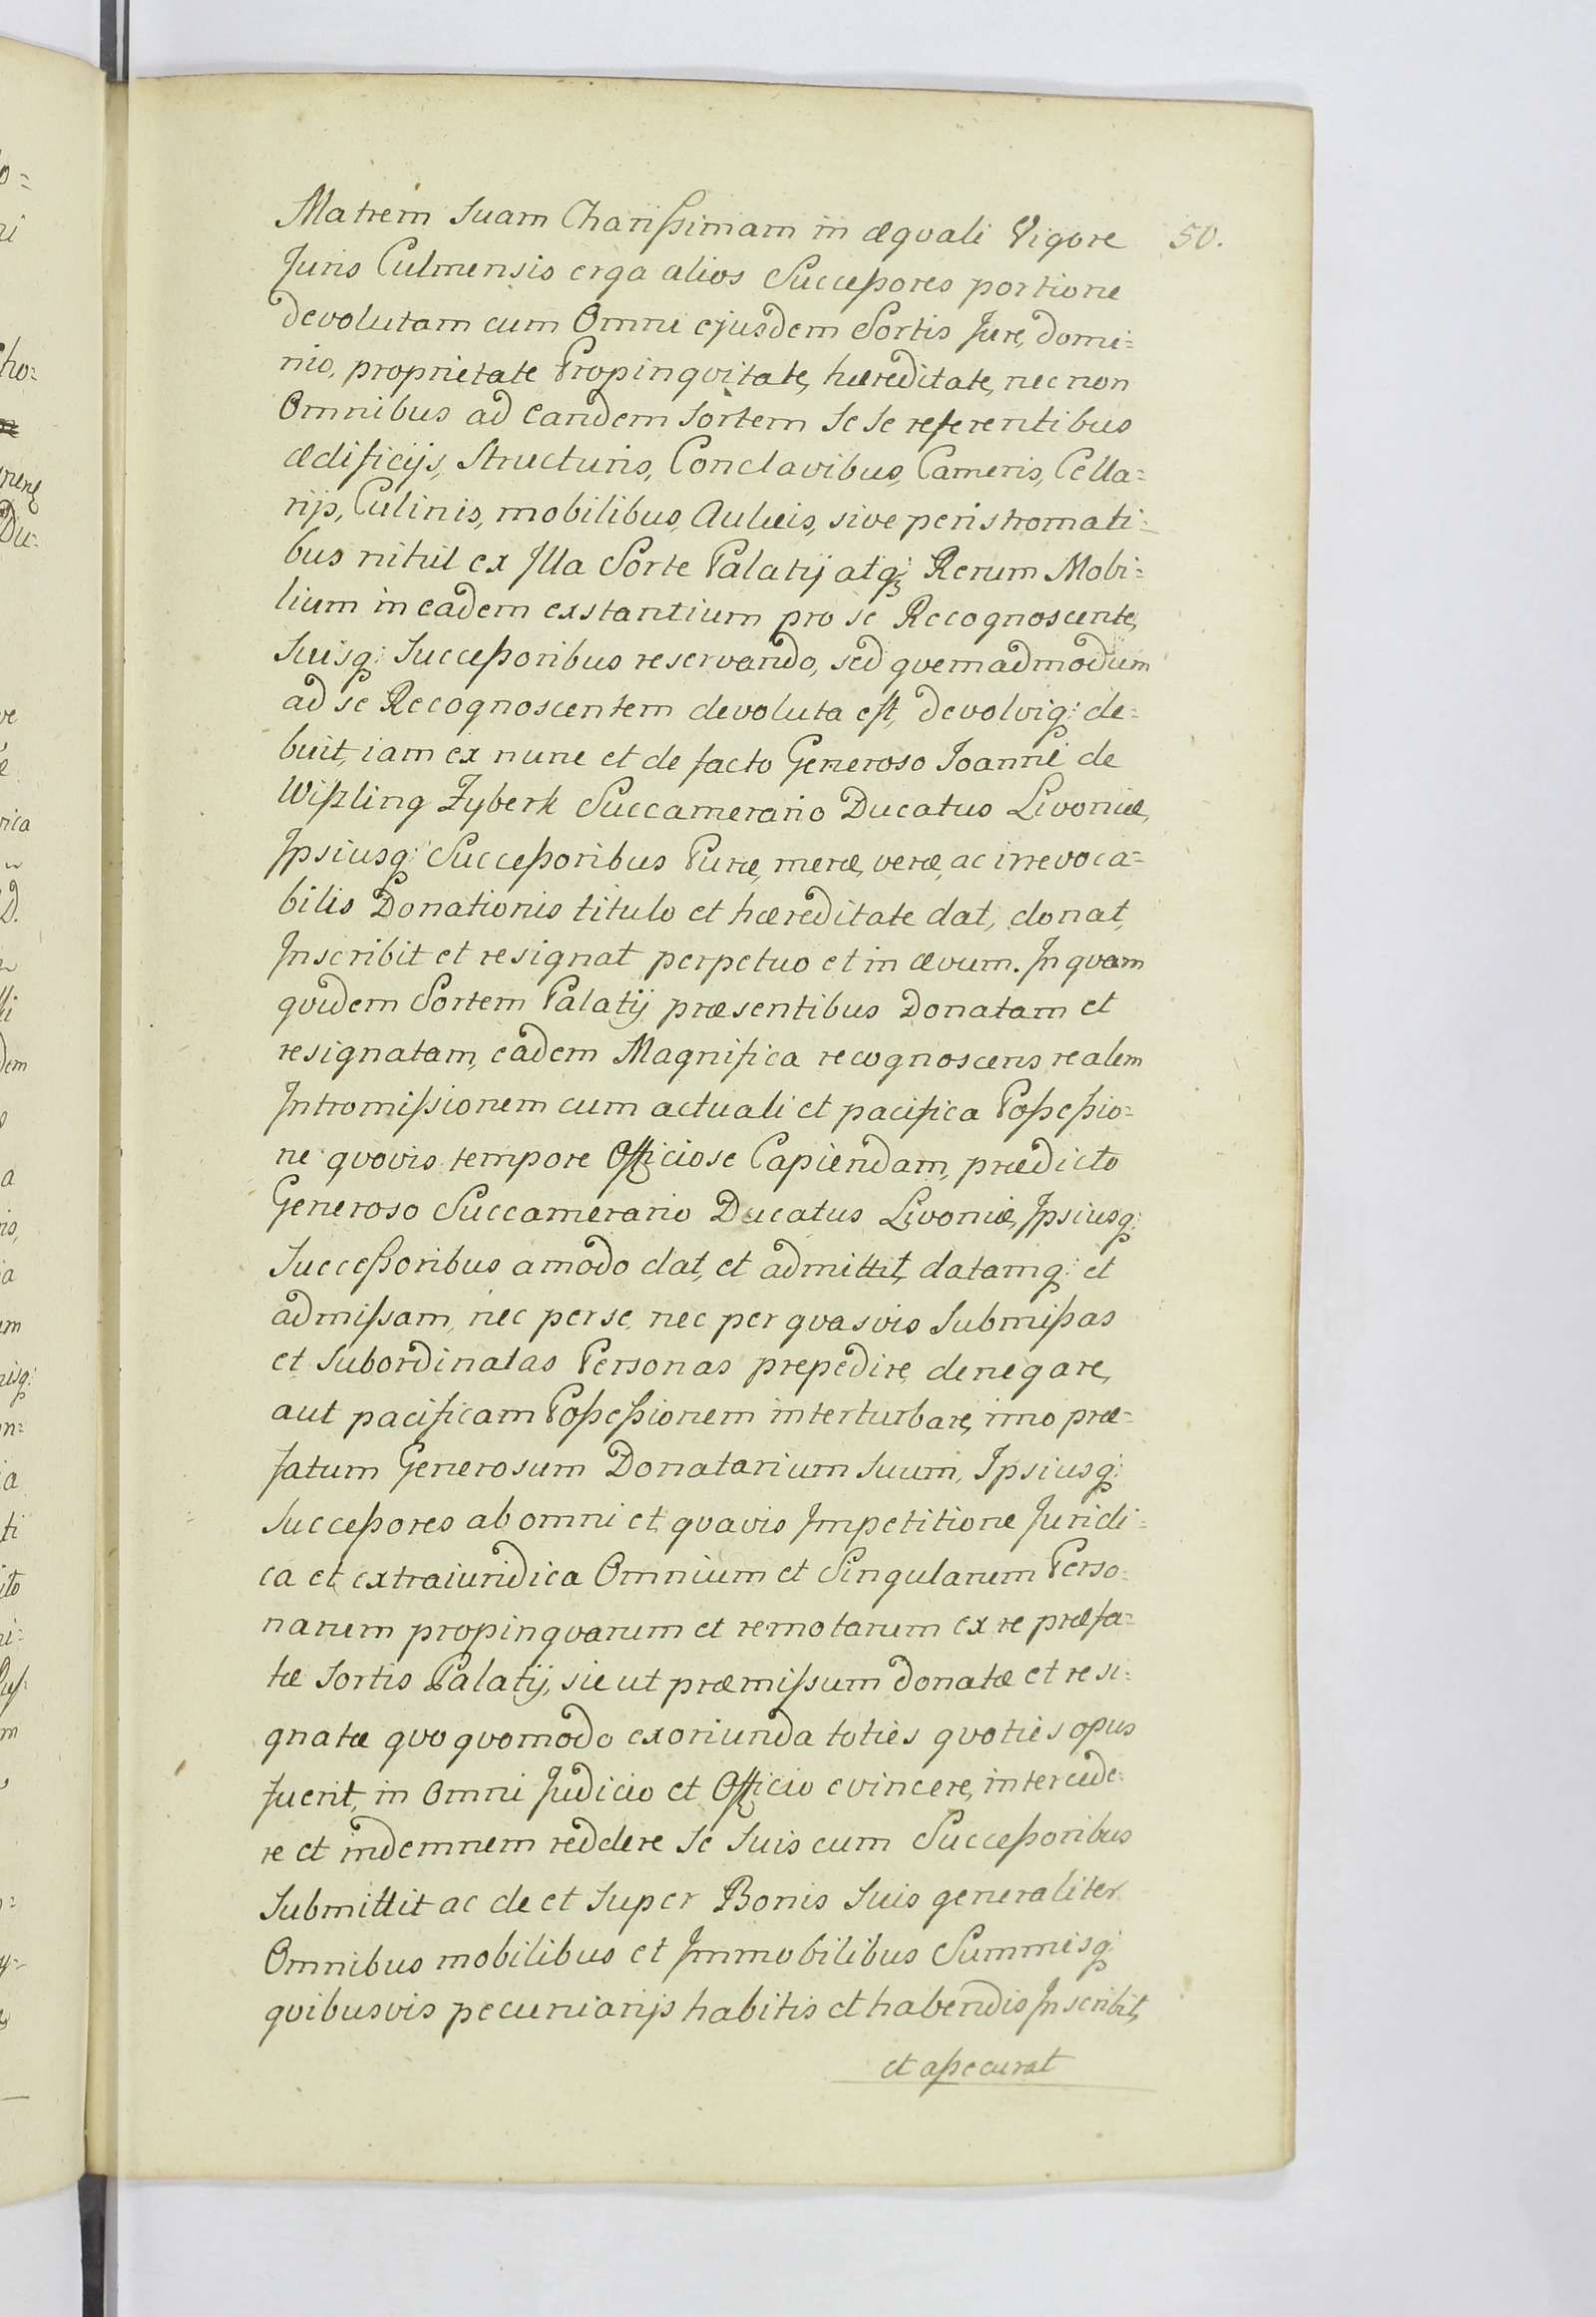 Matrem Suam Charissimam in æquali Vigore 50.
Juris Culmensis erga alios Successores portione
devolutam cum Omni ejusdem Sortis Jure, domi=
nio, proprietate Propinqvitate, hæreditate, nec non
Omnibus ad eandem Sortem Se Se referentibus
ædificijs, Structuris, Conclavibus, Cameris, Cella=
rijs, Culinis, mobilibus, Aulæis, sive peristromati=
bus nihil ex Illa Sorte Palatij atq; Rerum Mobi=
lium in eadem exstantium pro se Recognoscente,
Suisq: Successoribus reservando, sed qvemadmodum
ad se Recognoscentem devoluta est, devolviq: de=
buit, iam ex nunc et de facto Generoso Joanni de
Wiszling Zyberk Succamerario Ducatus Livoniæ,
Ipsiusq: Successoribus Puræ, meræ, veræ, ac irrevoca=
bilis Donationis titulo et hæreditate dat, donat,
Inscribit et resignat perpetuo et in ævum. In qvam
qvidem Sortem Palatij præsentibus Donatam et
resignatam, eadem Magnifica recognoscens realem
Intromissionem cum actuali et pacifica Possessio=
ne qvovis tempore Officiose Capiendam, prædicto
Generoso Succamerario Ducatus Livoniæ, Ipsiusq:
Successoribus amodo dat, et admittit, datamq: et
admissam, nec per se, nec per qvasvis Submissas
et Subordinatas Personas prepedire, denegare,
aut pacificam Possessionem interturbare, imo præ=
fatum Generosum Donatarium Suum, Ipsiusq:
Successores ab omni et qvavis Impetitione Juridi=
ca et extraiuridica Omnium et Singularum Perso=
narum propinqvarum et remotarum ex re præfa=
tæ Sortis Palatij, sic ut præmissum donatæ et resi=
gnatæ qvoqvomodo exoriunda toties qvoties opus
fuerit, in Omni Judicio et Officio evincere, intercede=
re et indemnem reddere Se Suis cum Successoribus
Submittit ac de et Super Bonis Suis generaliter
Omnibus mobilibus et Immobilibus Summisq:
qvibusvis pecuniarijs habitis et habendis Inscribit,
et assecurat